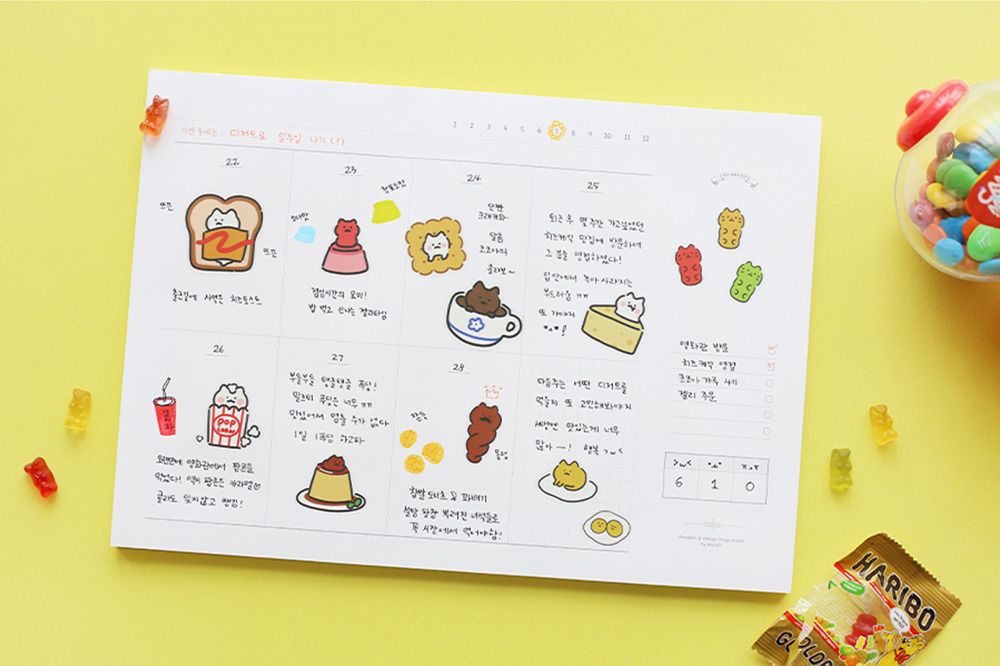 이번 주에는: 디저트로 일주일 나기(?)
1 2 3 4 5 6 7 8 9 10 11 12
22
뜨끈
뜨끈
출근길에 사먹은 치즈토스트
23
소다맛
점심시간의 묘미!
밥 먹고 신나는 젤리타임
24
단짠
크래커와
달콤
코코아의
콜라보~
25
퇴근 후 몇 주간 가고싶었던
치즈케익 맛집에 방문하여
그 꿈을 영접하였다!
입안에서 녹아 사라지는
부드러움 ㅠㅠ
또 가야지
26
콜라
POP
CORN
오랜만에 영화관에서 팝콘을
먹었다! 역시 팝콘은 카라멜
콜라도 잊지않고 챙김!
27
부들부들 탱글탱글 푸딩!
밀크티 푸딩은 너무 ㅠㅠ
맛있어서 멈출 수가 없다
1일 1푸딩 하고파
28
찹쌀 도너츠 꽈배기
설탕 팡팡 뿌려진 녀석들로
꼭 시장에서 먹어야함!
다음주는 어떤 디저트를
먹을지 또 고민해봐야지
세상엔 맛있는게 너무
많아—! 행복 >ㅠ<
영화관 방문
치즈케익 영접
코코아 가루 사기
젤리 주문
6 1 0
HARIBO
GOLD